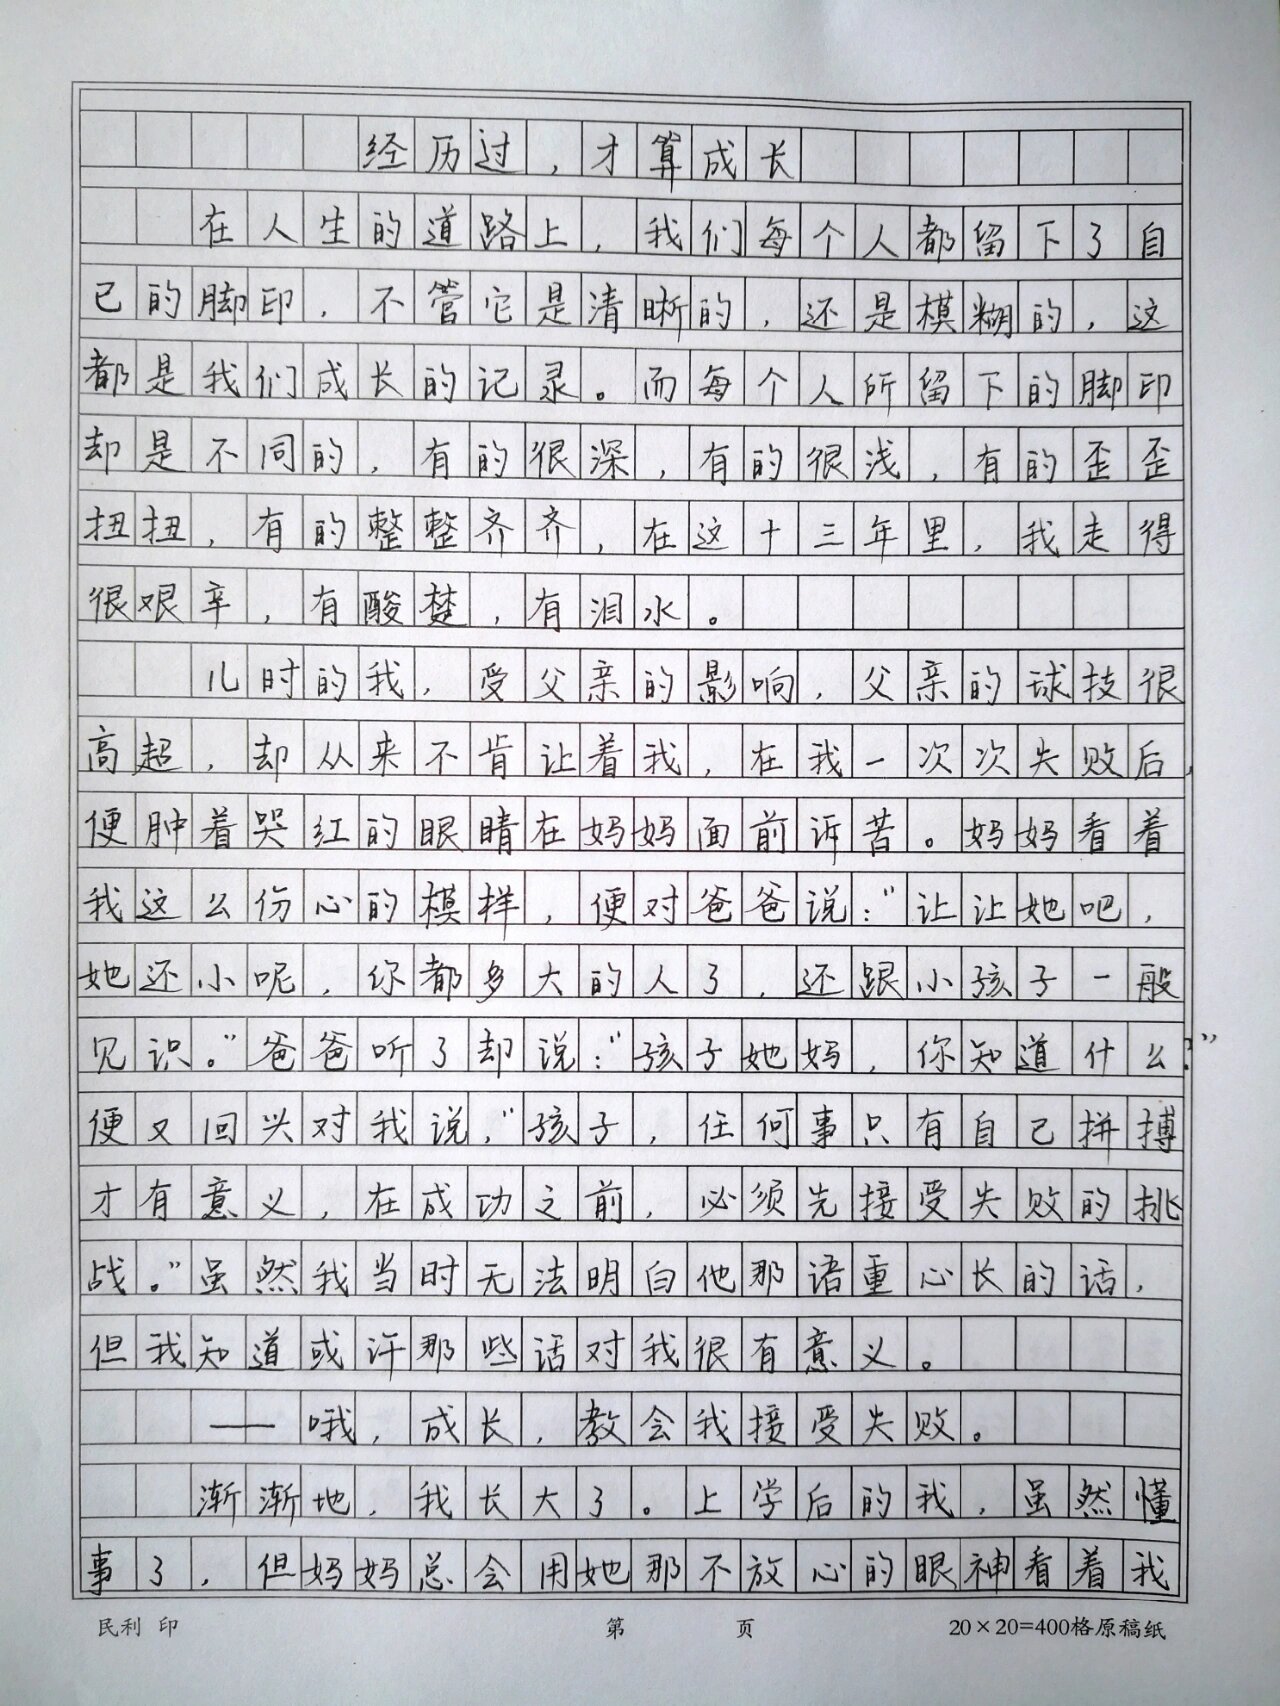 经历过，才算成长
在人生的道路上，我们每个人都留下了自
己的脚印，不管它是清晰的，还是模糊的，这
都是我们成长的记录。而每个人所留下的脚印
却是不同的，有的很深，有的很浅，有的歪歪
扭扭，有的整整齐齐，在这十三年里，我走得
很艰辛，有酸楚，有泪水。
儿时的我，受父亲的影响，父亲的球技很
高超，却从来不肯让着我，在我一次次失败后，
便肿着哭红的眼睛在妈妈面前诉苦。妈妈看着
我这么伤心的模样，便对爸爸说：“让让她吧，
她还小呢，你都多大的人了，还跟小孩子一般
见识。”爸爸听了却说：“孩子她妈，你知道什么？”
便又回头对我说，“孩子，任何事只有自己拼搏
才有意义，在成功之前，必须先接受失败的挑
战。”虽然我当时无法明白他那语重心长的话，
但我知道或许那些话对我很有意义。
——哦，成长，教会我接受失败。
渐渐地，我长大了。上学后的我，虽然懂
事了，但妈妈总会用她那不放心的眼神看着我
民利 印 第 页 20×20=400格原稿纸